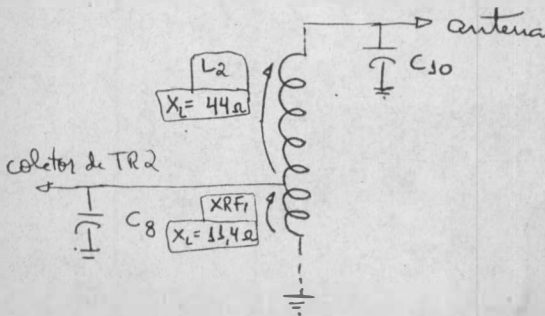 antena
C10
L2
XL= 44Ω
coletor de TR2
C8
XRF1
XL=11,4Ω